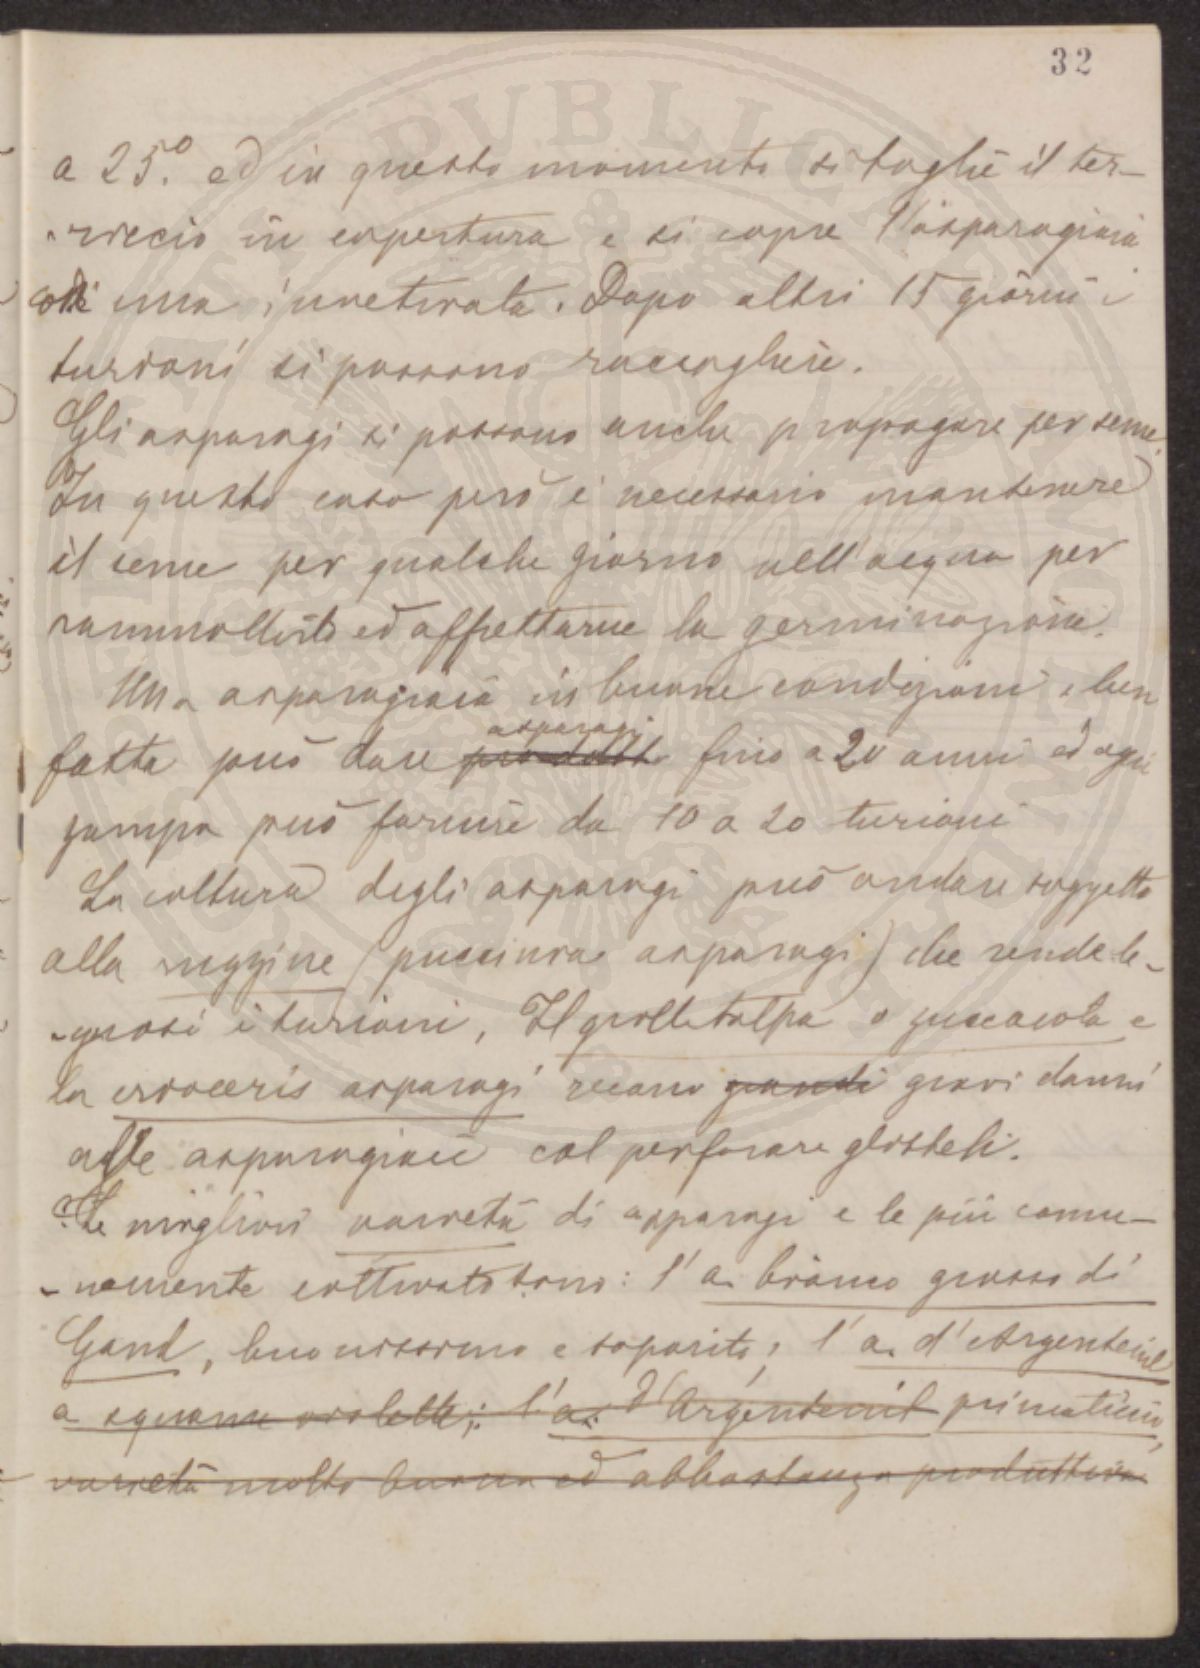 32
a 25.° ed in questo momento si toglie il ter-
-riccio in copertura e si copre l'asparagiaia
con una invetriata. Dopo altri 15 giorni i
turioni si possono raccogliere.
Gli asparagi si possono anche propagare per seme.
In questo caso però è necessario mantenere
il seme per qualche giorno nell'acqua per
rammollirlo ed affrettarne la germinazione.
Una asparagiaia in buone condizioni e ben
asparagi
fatta può dare prodotto fino a 20 anni ed ogni
zampa può fornire da 10 a 20 turioni
La coltura degli asparagi può andare soggetta
alla ruggine (puccinia asparagi) che rende le-
-gnosi i turioni, Il grillotalpa o zuccaiola e
la crioceris asparagi recano grandi gravi danni
alle asparagiaie col perforare gli steli.
Le migliori varietà di asparagi e le più comu-
-nemente coltivate sono: l'a. bianco grosso di
Gand, buonissimo e saporito; l'a. d'Argenteuil
a squame violette; l'a. d'Argenteuil primaticcio,
varietà molto buona ed abbastanza produttiva